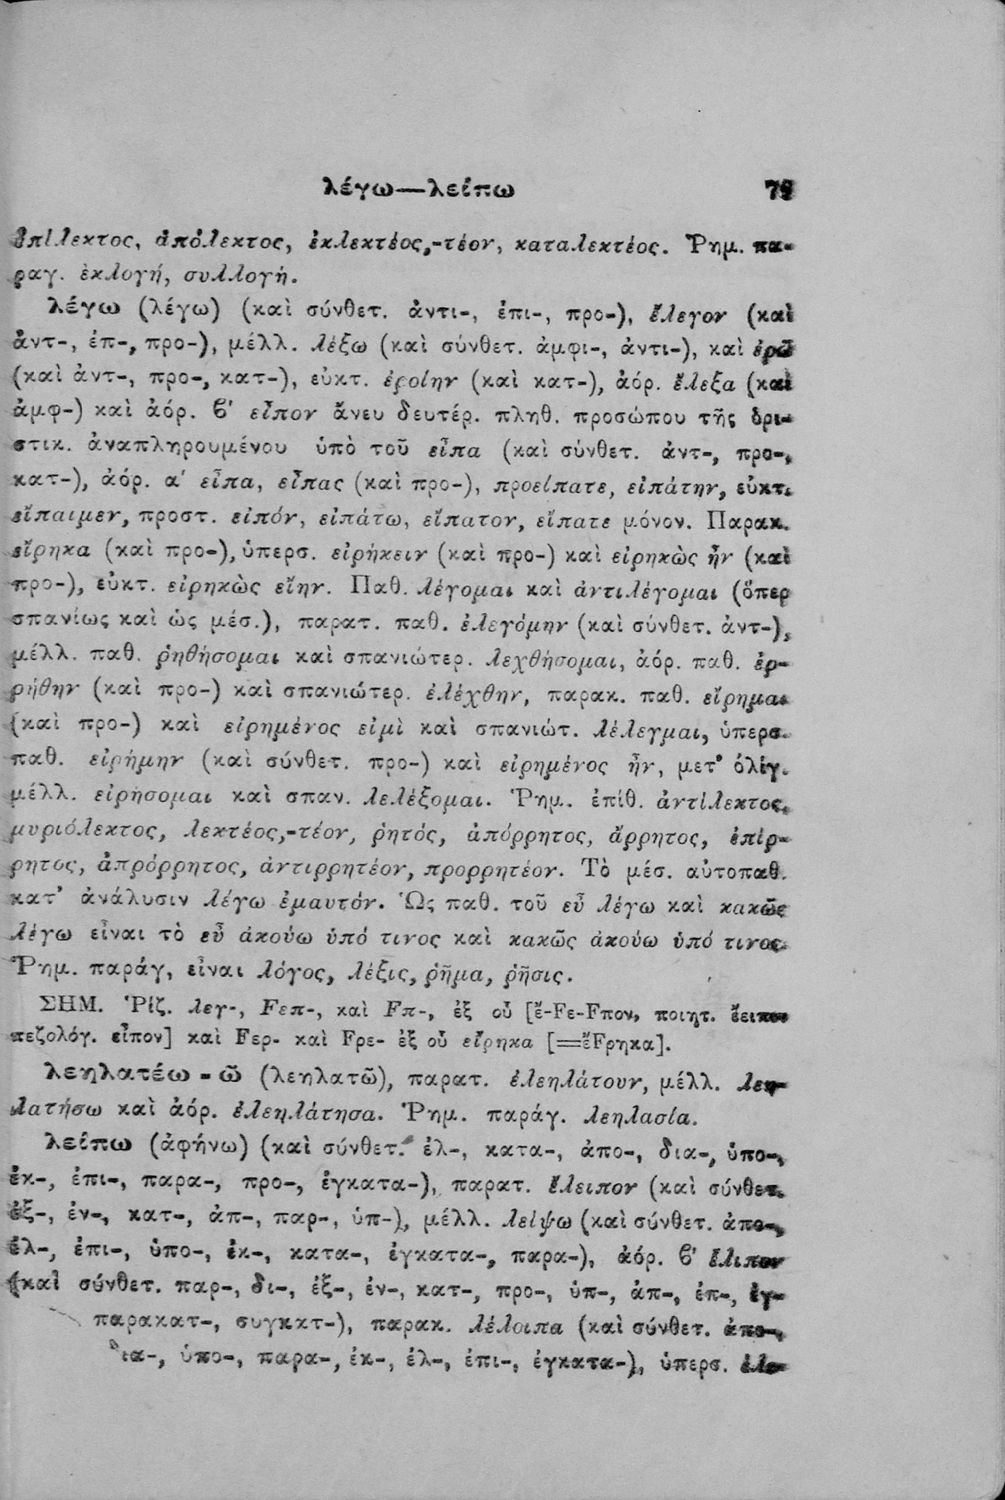 λέγω—λείπω 79
ἐπίλεκτος, ἀπόλεκτος, ἐκλεκτέος,-τέον, καταλεκτέος. Ῥημ. πα-
ραγ. ἐκλογή, συλλογή.
λέγω (λέγω) (καὶ σύνθετ. ἀντι-, ἐπι-, προ-), ἔλεγον (καὶ
ἀντ-, ἐπ-, προ-), μέλλ. λέξω (καὶ σύνθετ. ἀμφι-, ἀντι-), καὶ ἐρῶ
(καὶ ἀντ-, προ-, κατ-), εὐκτ. ἐροίην (καὶ κατ-), ἀόρ. ἔλεξα (καὶ
ἀμφ-) καὶ ἀόρ. ϐ' εἶπον ἄνευ δευτέρ. πληθ. προσώπου τῆς ὁρι-
στικ. ἀναπληρουμένου ὑπὸ τοῦ εἶπα (καὶ σύνθετ. ἀντ-, προ-,
κατ-), ἀόρ. α' εἶπα, εἶπας (καὶ προ-), προείπατε, εἰπάτην, εὐκτ.
εἴπαιμεν, προστ. εἰπόν, εἰπάτω, εἴπατον, εἴπατε μόνον. Παρακ.
εἴρηκα (καὶ προ-), ὑπερσ. εἰρήκειν (καὶ προ-) καὶ εἰρηκὼς ἦν (καὶ
προ-), εὐκτ. εἰρηκὼς εἴην. Παθ. λέγομαι καὶ ἀντιλέγομαι (ὅπερ
σπανίως καὶ ὡς μέσ.), παρατ. παθ. ἐλεγόμην (καὶ σύνθετ. ἀντ-),
μέλλ. παθ. ῥηθήσομαι καὶ σπανιώτερ. λεχθήσομαι, ἀόρ. παθ. ἐρ-
ρήθην (καὶ προ-) καὶ σπανιώτερ. ἐλέχθην, παρακ. παθ. εἴρημαι
(καὶ προ-) καὶ εἰρημένος εἰμὶ καὶ σπανιώτ. λέλεγμαι, ὑπερσ.
παθ. εἰρήμην (καὶ σύνθετ. προ-) καὶ εἰρημένος ἦν, μετ' ὀλίγ.
μέλλ. εἰρήσομαι καὶ σπαν. λελέξομαι. Ῥημ. ἐπίθ. ἀντίλεκτος,
μυριόλεκτος, λεκτέος,-τέον, ῥητός, ἀπόρρητος, ἄρρητος, ἐπίρ-
ρητος, ἀπρόρρητος, ἀντιρρητέον, προρρητέον. Τὸ μέσ. αὐτοπαθ.
κατ' ἀνάλυσιν λέγω ἐμαυτόν. Ὡς παθ. τοῦ εὖ λέγω καὶ κακῶς
λέγω εἶναι τὸ εὖ ἀκούω ὑπό τινος καὶ κακῶς ἀκούω ὑπό τινος.
Ῥημ. παράγ, εἶναι λόγος, λέξις, ῥῆμα, ῥῆσις.
ΣΗΜ. Ῥίζ. λεγ-, Fεπ-, καὶ Fπ-, ἐξ οὗ [ἔ-Fε-Fπον, ποιητ. ἔειπον
πεζολόγ. εἶπον] καὶ Fερ- καὶ Fρε- ἐξ οὗ εἴρηκα [=ἔFρηκα].
λεηλατέω-ῶ (λεηλατῶ), παρατ. ἐλεηλάτουν, μέλλ. λεη-
λατήσω καὶ ἀόρ. ἐλεηλάτησα. Ῥημ. παράγ. λεηλασία.
λείπω (ἀφήνω) (καὶ σύνθετ. ἐλ-, κατα-, ἀπο-, δια-, ὑπο-,
ἐκ-, ἐπι-, παρα-, προ-, ἐγκατα-), παρατ. ἔλειπον (καὶ σύνθετ.
ἐξ-, ἐν-, κατ-, ἀπ-, παρ-, ὑπ-), μέλλ. λείψω (καὶ σύνθετ. ἀπο-,
ἐλ-, ἐπι-, ὑπο-, ἐκ-, κατα-, ἐγκατα-, παρα-), ἀόρ. ϐ' ἔλιπον
(καὶ σύνθετ. παρ-, δι-, ἐξ-, ἐν-, κατ-, προ-, ὑπ-, ἀπ-, ἐπ-, ἐγ-
παρακατ-, συγκατ-), παρακ. λέλοιπα (καὶ σύνθετ. ἀπο-,
ια-, ὑπο-, παρα-, ἐκ-, ἐλ-, ἐπι-, ἐγκατα-), ὑπερσ. ἐλε-